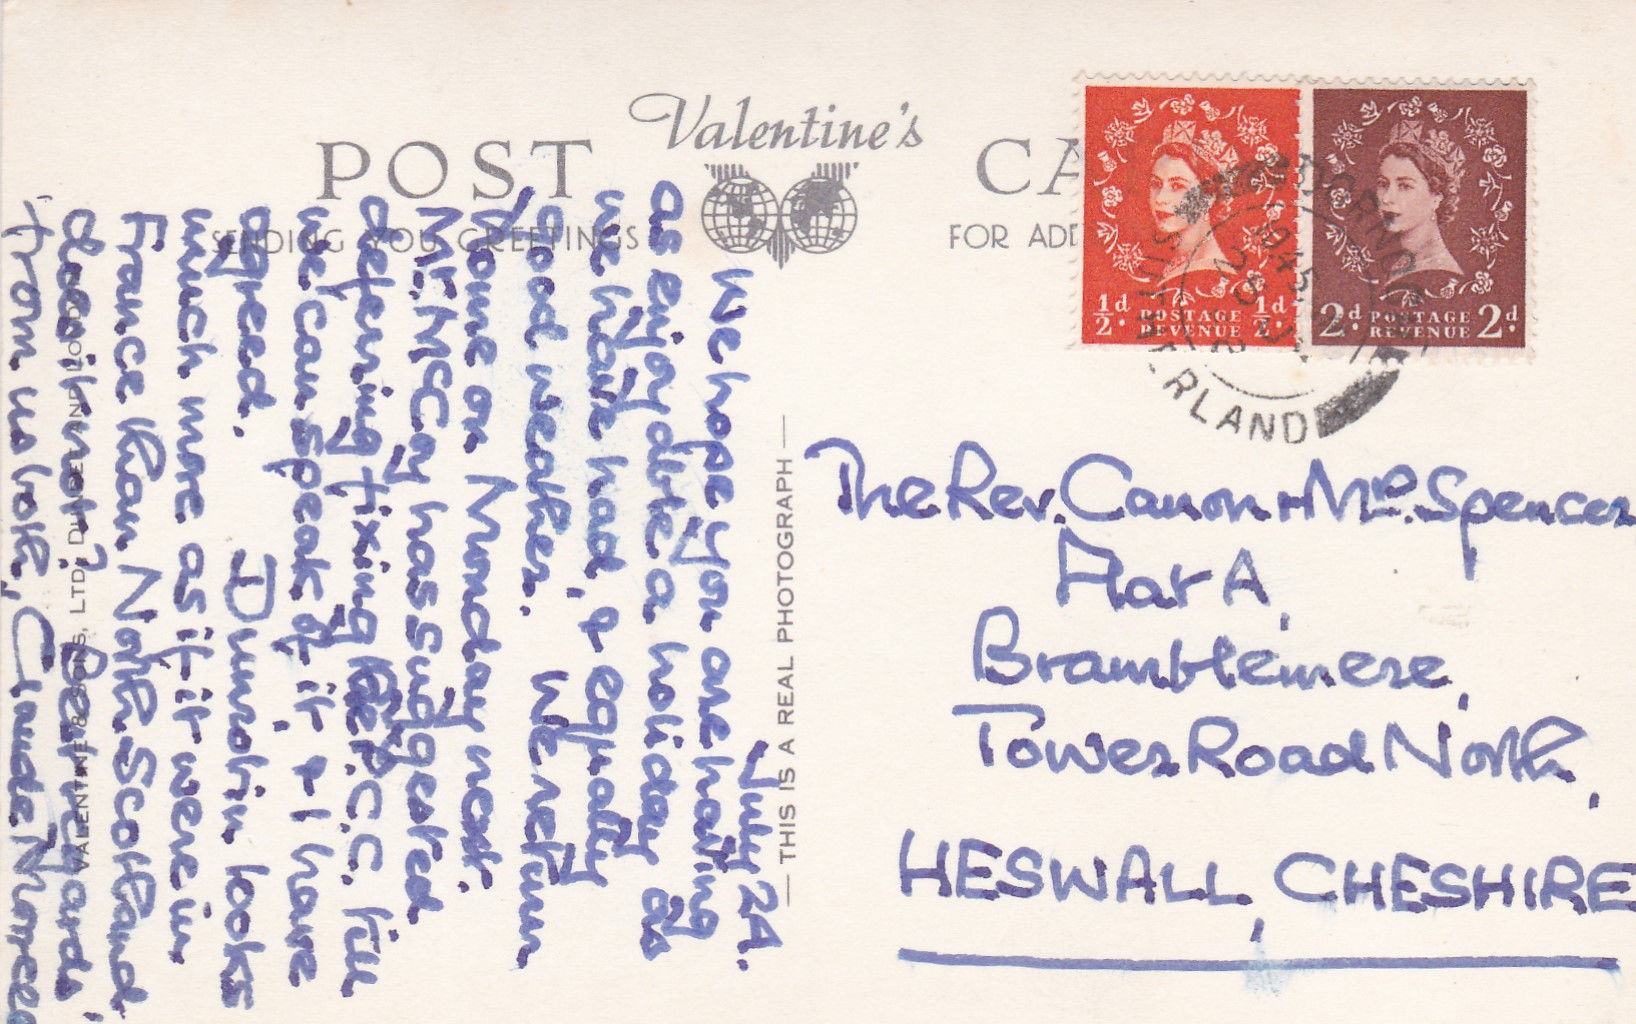 Valentine's
POST CA
SENDING YOU GREETINGS
FOR ADD
½d. POSTAGE ½d.
REVENUE
2d. POSTAGE 2d.
REVENUE
SUTHERLAND
The Rev. Canon + Mrs. Spencer
Flat A,
Bramblemere,
Tower Road North,
HESWALL, CHESHIRE
THIS IS A REAL PHOTOGRAPH
VALENTINE & SONS, LTD., DUNDEE AND LONDON
July 24.
We hope you are having
as enjoyable a holiday as
we have had, & equally
good weather. We return
home on Monday next.
Mr. McCay has suggested
deferring fixing P.C.C. till
we can speak of it, & I have
agreed. Dunrobin looks
much more as if it were in
France than North Scotland
does it not? Best regards
from us both, Claude